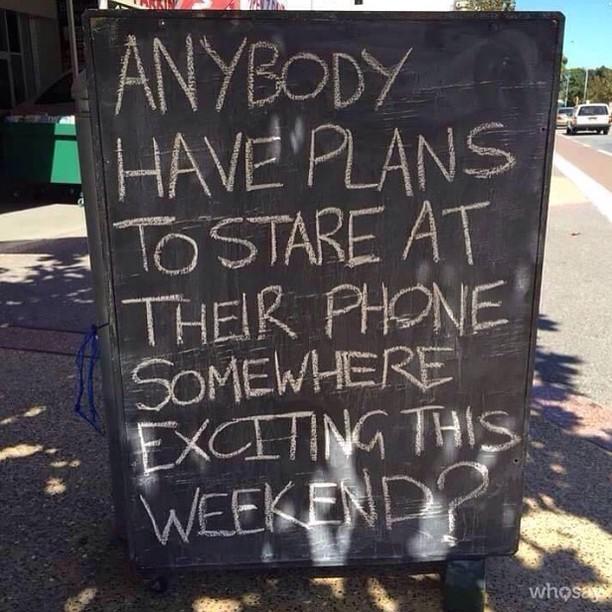 ANYBODY
HAVE PLANS
TO STARE AT
THEIR PHONE
SOMEWHERE
EXCITING THIS
WEEKEND?